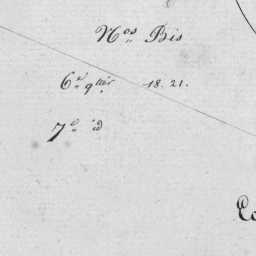 Nos Bis
6e qtier 18. 21.
7e id